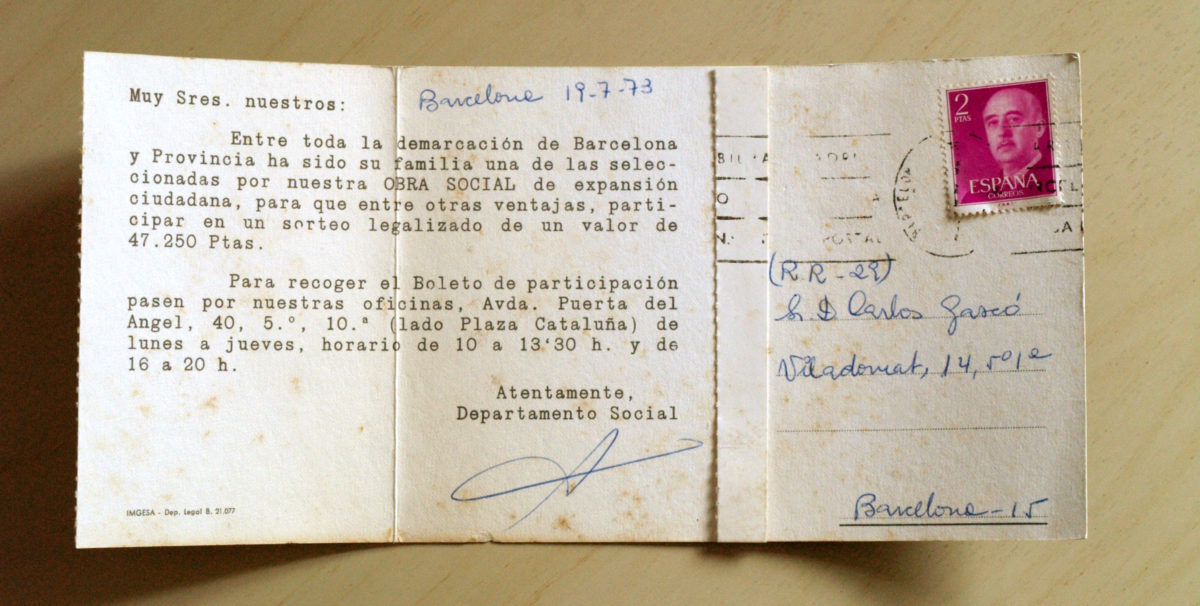 Muy Sres. nuestros:
Barcelona 19-7-73
Entre toda la demarcación de Barcelona
y Provincia ha sido su familia una de las selec-
cionadas por nuestra OBRA SOCIAL de expansión
ciudadana, para que entre otras ventajas, parti-
cipar en un sorteo legalizado de un valor de
47.250 Ptas.
Para recoger el Boleto de participación
pasen por nuestras oficinas, Avda. Puerta del
Angel, 40, 5.º, 10.ª (lado Plaza Cataluña) de
lunes a jueves, horario de 10 a 13'30 h. y de
16 a 20 h.
Atentamente,
Departamento Social
IMGESA - Dep. Legal B. 21.077
2
PTAS
ESPAÑA
CORREOS
POSTAL
(RR-29)
Sr. D Carlos Gascó
Viladomat, 14, 5º 1ª
Barcelona - 15